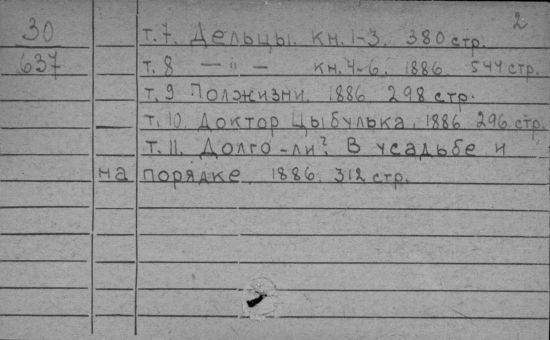 2
30 т.7. Дельцы. кн.1-3. 380 стр.
637 т.8 — " — кн.4-6. 1886. 544 стр.
т.9 Полжизни. 1886 298 стр.
т.10. Доктор Цыбулька. 1886 296 стр.
т.11. Долго-ли? В усадьбе и
на порядке. 1886. 312 стр.